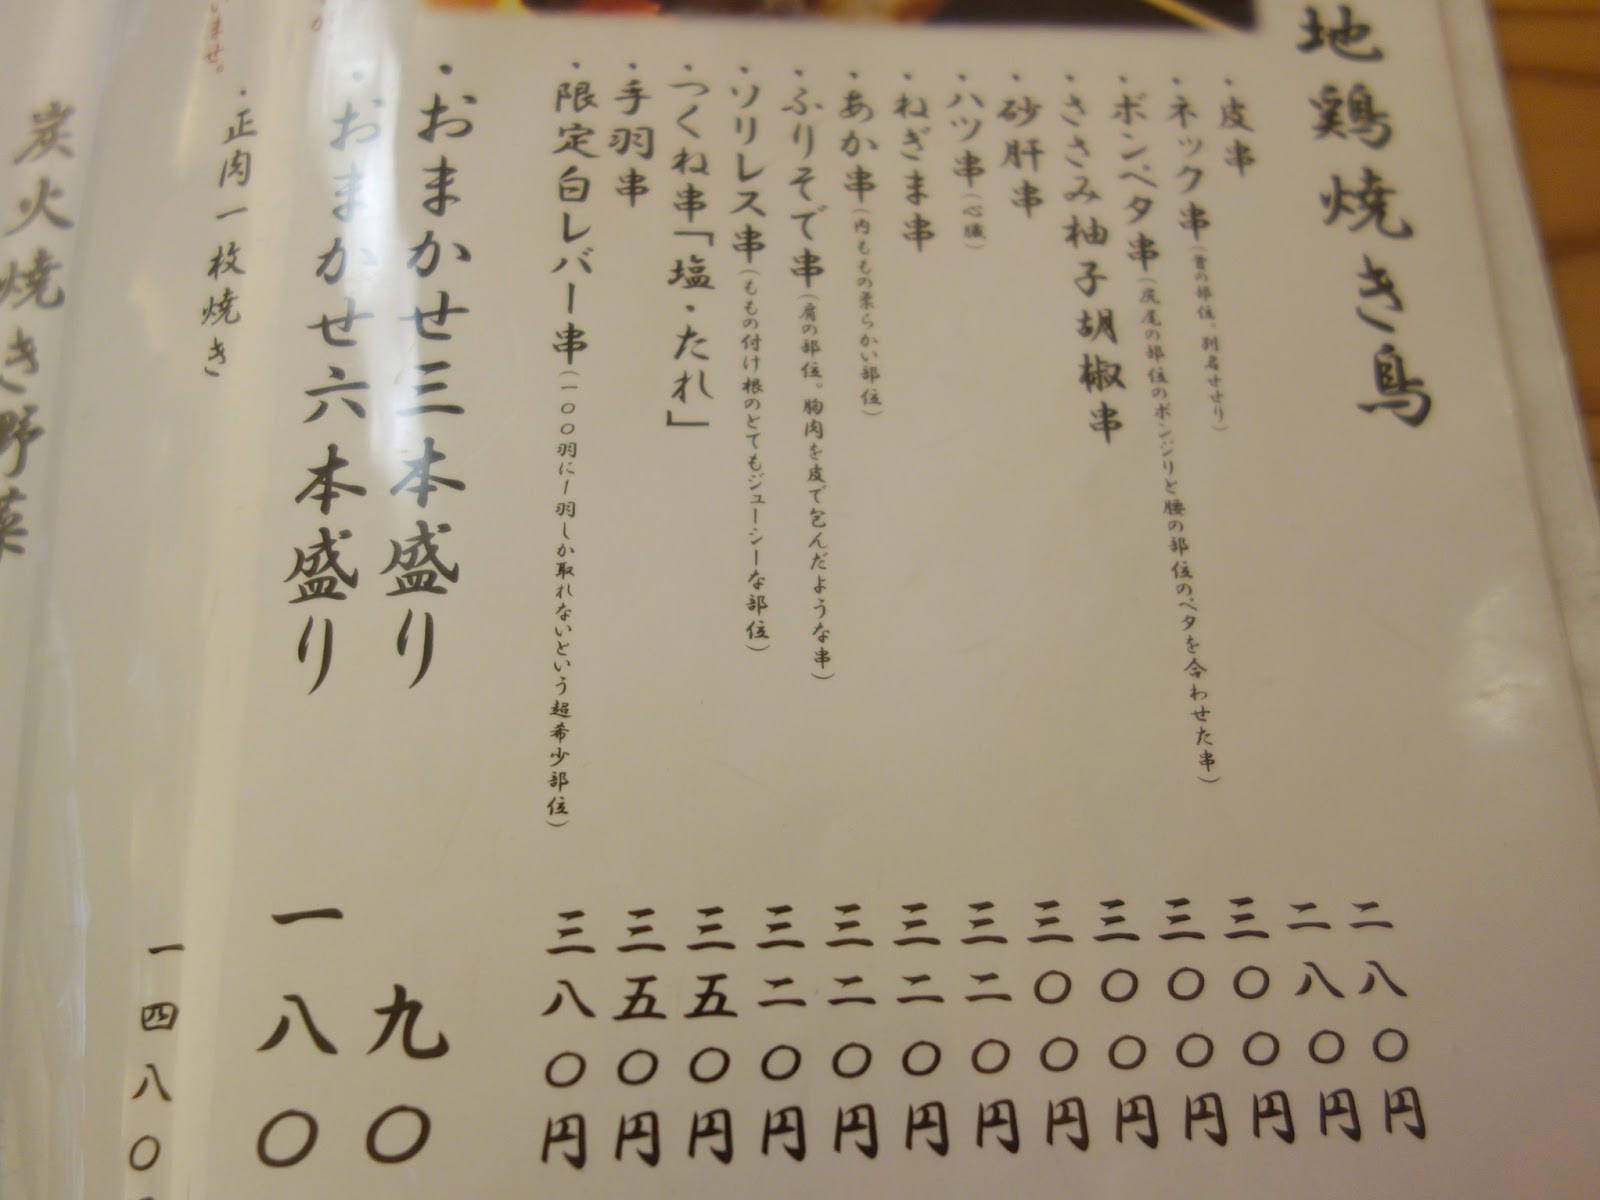 地鶏焼き鳥
・皮串 二八〇円
・ネック串(首の部位。別名せせり) 二八〇円
・ボンペタ串(尻尾の部位のボンジリと腰の部位のペタを合わせた串) 三〇〇円
・ささみ柚子胡椒串 三〇〇円
・砂肝串 三〇〇円
・ハツ串(心臓) 三〇〇円
・ねぎま串 三二〇円
・あか串(内ももの柔らかい部位) 三二〇円
・ふりそで串(肩の部位。胸肉を皮で包んだような串) 三二〇円
・ソリレス串(ももの付け根のとてもジューシーな部位) 三二〇円
・つくね串「塩・たれ」 三五〇円
・手羽串 三五〇円
・限定白レバー串(一〇〇羽に一羽しか取れないという超希少部位) 三八〇円
・おまかせ三本盛り 九〇
・おまかせ六本盛り 一八〇
・正肉一枚焼き 一四八〇
いませ。
炭火焼き野菜